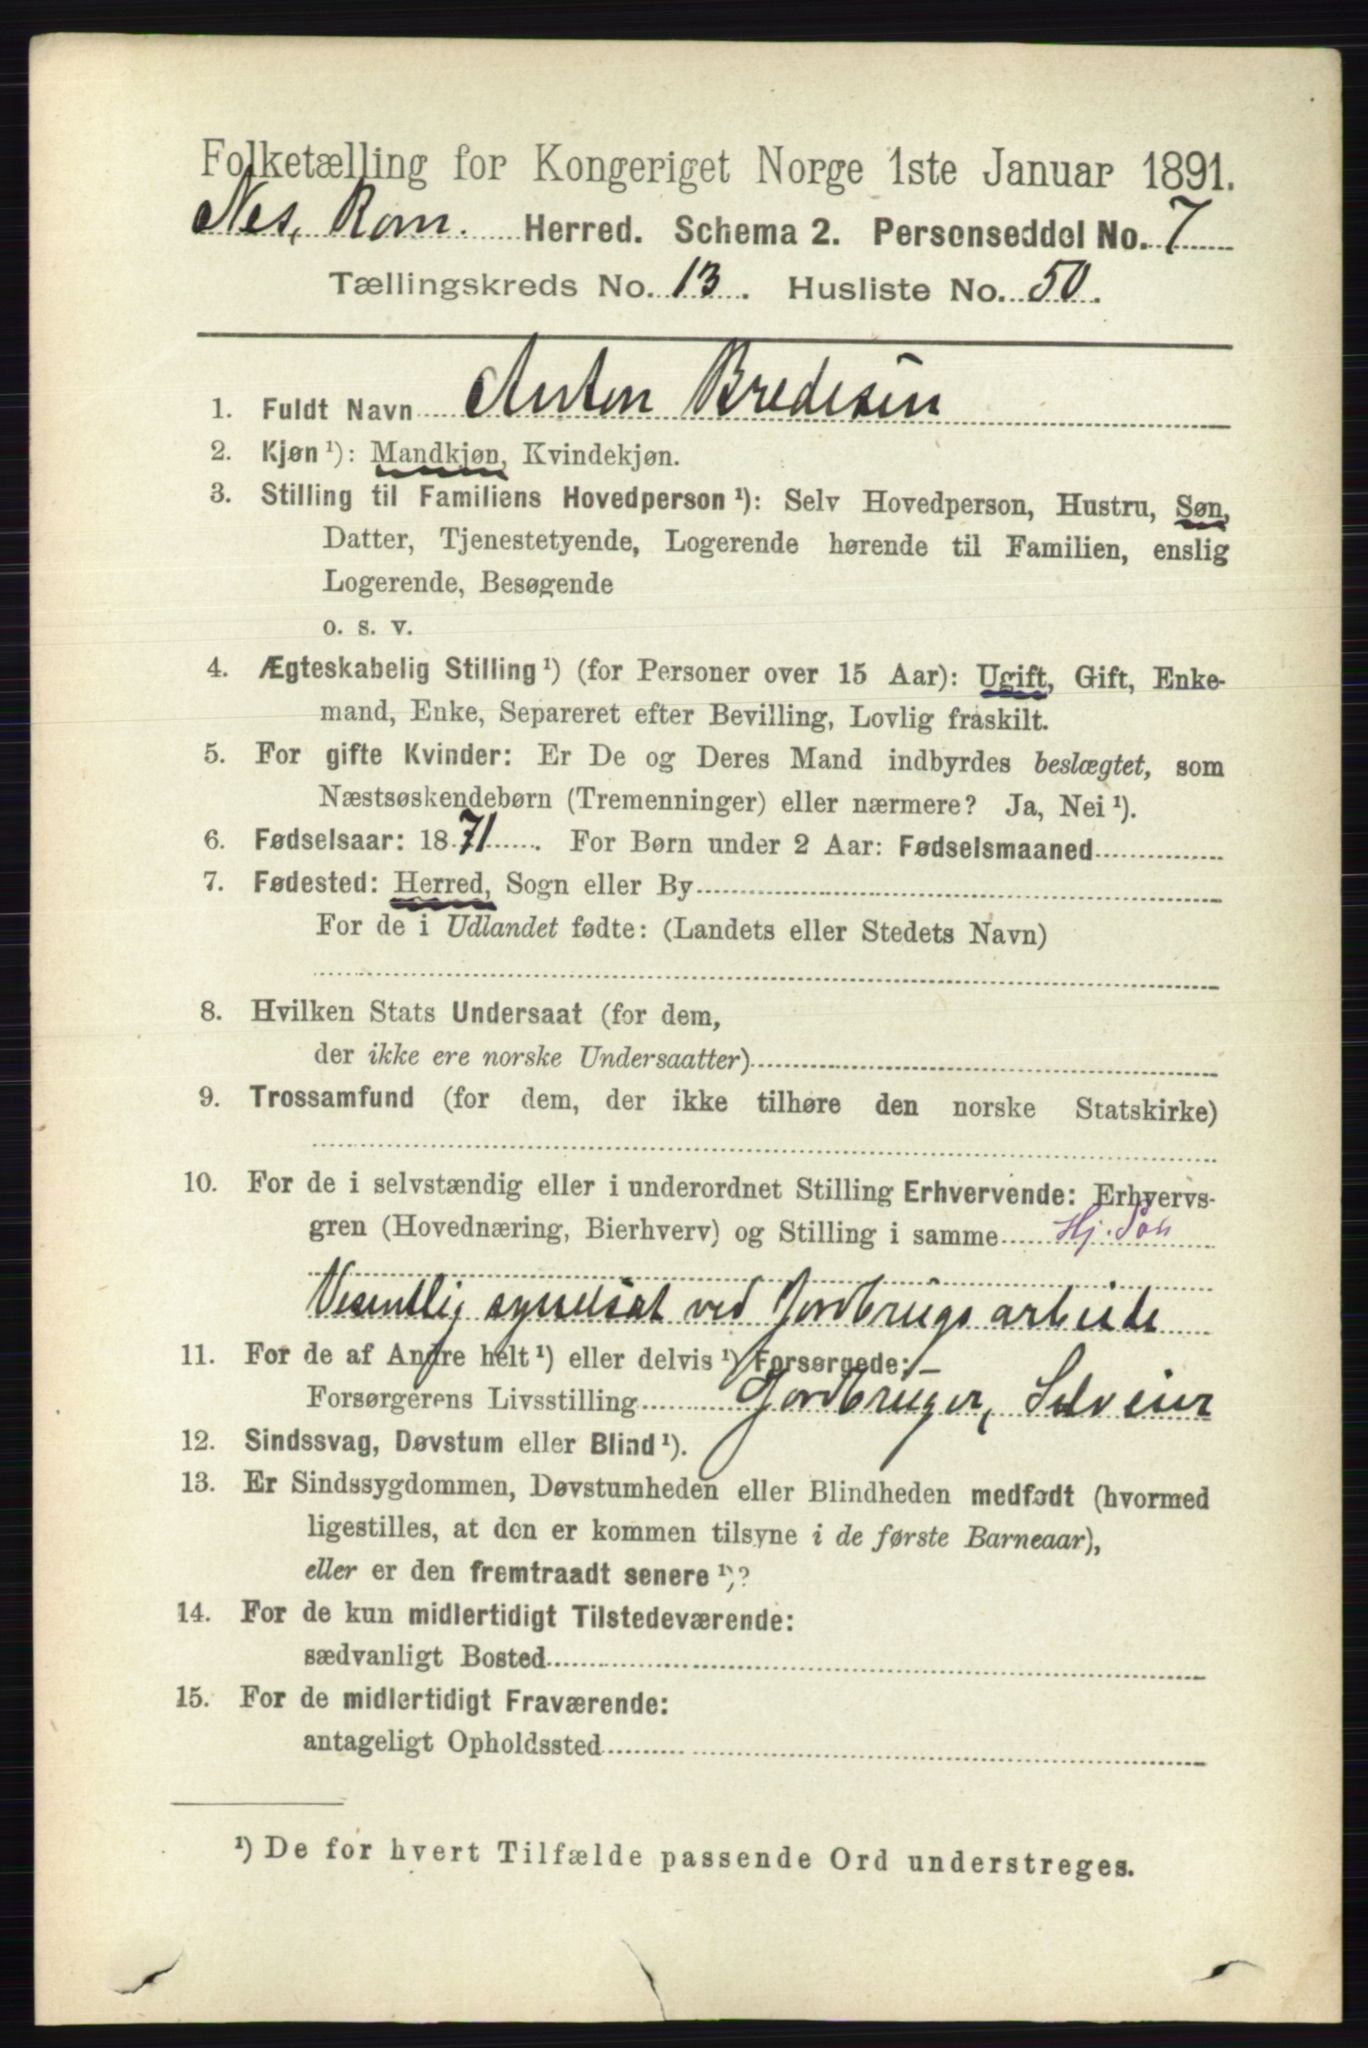 Folketælling for Kongeriget Norge 1ste Januar 1891.
Nes, Rom. Herred. Schema 2. Personseddel No. 7
Tællingskreds No. 13. Husliste No. 50.
1. Fuldt Navn Anton Bredesen
2. Kjøn ¹): Mandkjøn, Kvindekjøn.
3. Stilling til Familiens Hovedperson ¹): Selv Hovedperson, Hustru, Søn,
Datter, Tjenestetyende, Logerende hørende til Familien, enslig
Logerende, Besøgende
o. s. v.
4. Ægteskabelig Stilling ¹) (for Personer over 15 Aar): Ugift, Gift, Enke-
mand, Enke, Separeret efter Bevilling, Lovlig fraskilt.
5. For gifte Kvinder: Er De og Deres Mand indbyrdes beslægtet, som
Næstsøskendebørn (Tremenninger) eller nærmere? Ja, Nei ¹).
6. Fødselsaar: 1871. For Børn under 2 Aar: Fødselsmaaned
7. Fødested: Herred, Sogn eller By
For de i Udlandet fødte: (Landets eller Stedets Navn)
8. Hvilken Stats Undersaat (for dem,
der ikke ere norske Undersaatter)
9. Trossamfund (for dem, der ikke tilhøre den norske Statskirke)
10. For de i selvstændig eller i underordnet Stilling Erhvervende: Erhvervs-
gren (Hovednæring, Bierhverv) og Stilling i samme Hj. Søn
Vesentlig sysselsat ved Jordbrugsarbeide
11. For de af Andre helt ¹) eller delvis ¹) Forsørgede:
Forsørgerens Livsstilling Jordbruger, Selveier
12. Sindssvag, Døvstum eller Blind ¹).
13. Er Sindssygdommen, Døvstumheden eller Blindheden medfødt (hvormed
ligestilles, at den er kommen tilsyne i de første Barneaar),
eller er den fremtraadt senere ¹)?
14. For de kun midlertidigt Tilstedeværende:
sædvanligt Bosted
15. For de midlertidigt Fraværende:
antageligt Opholdssted
¹) De for hvert Tilfælde passende Ord understreges.